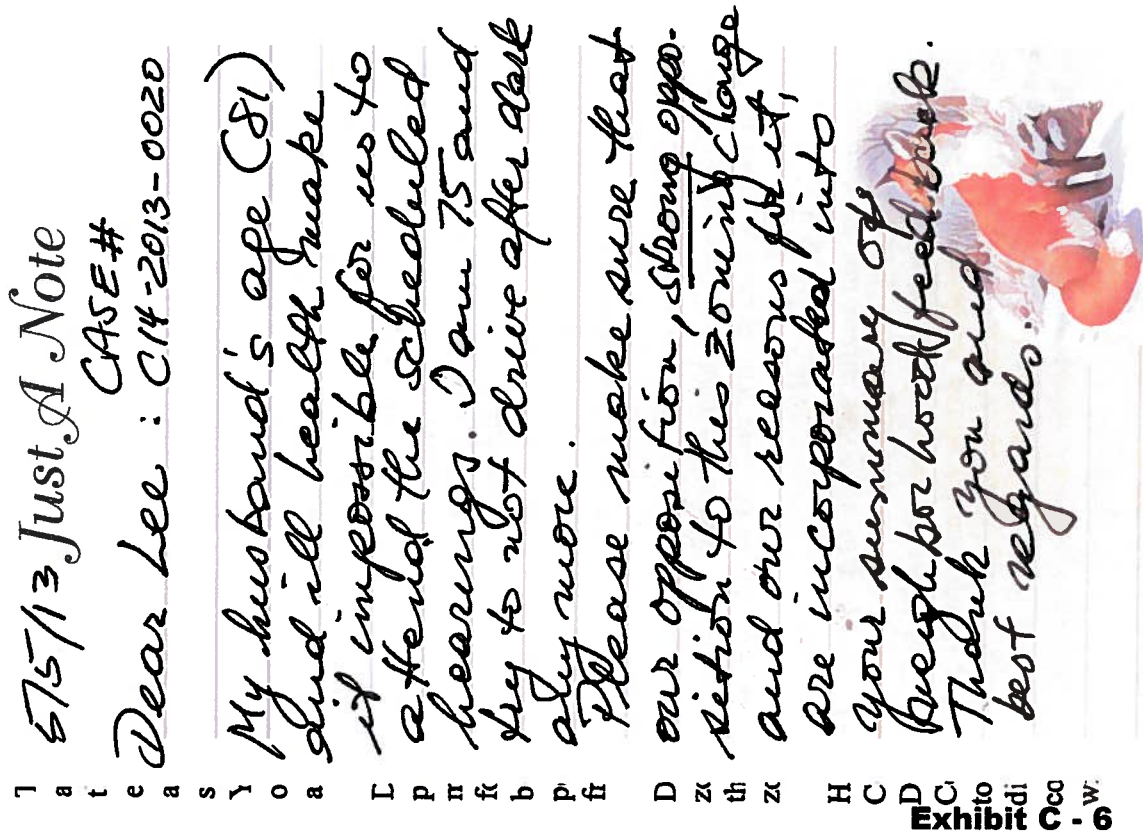 5/5/13 Just A Note
CASE #
Dear Lee : C14-2013-0020
My husband's age (81)
and ill health make
it impossible for us to
attend the scheduled
hearings. I am 75 and
try to not drive after dark
any more.
Please make sure that
our opposition, strong oppo-
sition to this zoning change
and our reasons for it,
are incorporated into
your summary of
neighborhood feed back.
Thank you and
best regards.
a
t
e
a
s
Y
o
a
p
b
D
zo
th
zo
H
C
D
to
di
co
w.
Exhibit C - 6